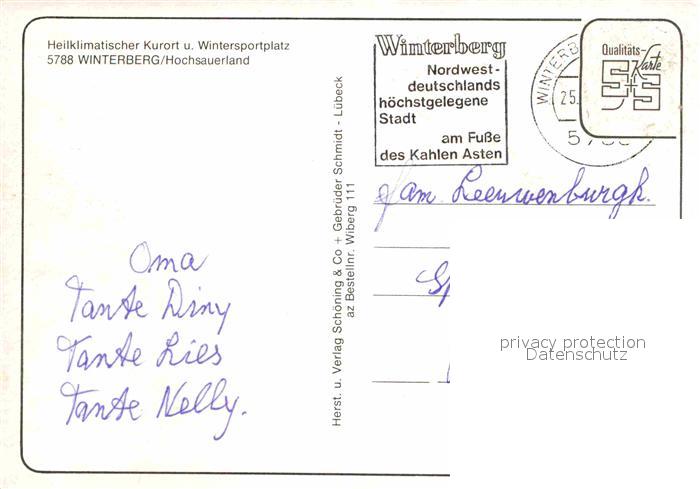 Heilklimatischer Kurort u. Wintersportplatz
5788 WINTERBERG/Hochsauerland
Oma
Tante Diny
Tante Lies
Tante Nelly.
Herst. u. Verlag Schöning & Co + Gebrüder Schmidt - Lübeck
az Bestellnr. Wiberg 111
Winterberg
Nordwest-
deutschlands
höchstgelegene
Stadt
am Fuße
des Kahlen Asten
WINTERB
25.
Qualitäts-
Karte
S+S
fam. Leeuwenburgh.
privacy protection
Datenschutz